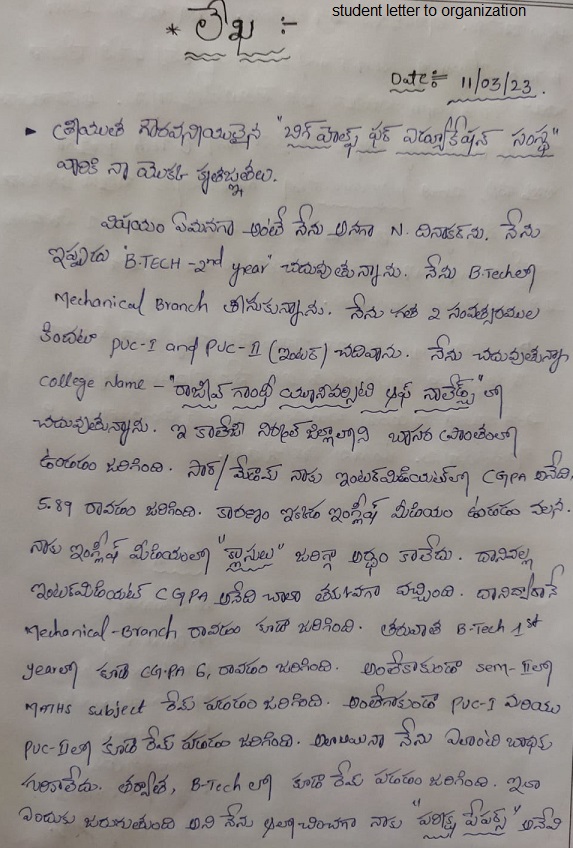 student letter to organization
* లేఖ :-
Date:- 11/03/23.
► శ్రీయుత గౌరవనీయులైన "బిగ్ హెల్ప్ ఫర్ ఎడ్యుకేషన్ సంస్థ"
వారికి నా యొక్క కృతజ్ఞతలు.
విషయం ఏమనగా అంటే నేను అనగా N. దినాకర్‌ను. నేను
ఇప్పుడు 'B.TECH-2nd year' చదువుతున్నాను. నేను B.Techలో
Mechanical Branch తీసుకున్నాను. నేను గత 2 సంవత్సరముల
కిందట PUC-I and PUC-II (ఇంటర్) చదివాను. నేను చదువుతున్న
college Name - "రాజీవ్ గాంధీ యూనివర్సిటీ ఆఫ్ నాలెడ్జ్"లో
చదువుతున్నాను. ఇ కాలేజి నిర్మల్ జిల్లాలోని బాసర ప్రాంతంలో
ఉండడం జరిగింది. సార్/మేడమ్ నాకు ఇంటర్‌మీడియట్‌లో CGPA అనేది,
5.89 రావడం జరిగింది. కారణం ఇక్కడ ఇంగ్లీష్ మీడియం ఉండడం వలన.
నాకు ఇంగ్లీష్ మీడియంలో "క్లాసులు" జరిగ్గా అర్థం కాలేదు. దానివల్ల
ఇంటర్‌మీడియట్ CGPA అనేది చాలా తక్కువగా వచ్చింది. దానిద్వారానే
Mechanical-Branch రావడం కూడా జరిగింది. తరువాత B-Tech 1st
yearలో కూడా CG.PA 6, రావడం జరిగింది. అంతేకాకుండా sem-IIలో
MATHS subject రేమ్ పడడం జరిగింది. అంతేగాకుండా PUC-I మరియు
PUC-IIలో కూడా రేమ్ పడడం జరిగింది. అయినా నేను ఎలాంటి బాధకు
గురికాలేదు. తర్వాత, B-Tech లో కూడా రేమ్ పడడం జరిగింది. ఇలా
ఎందుకు జరుగుతుంది అని నేను ఆలోచించగా నాకు "పరీక్ష పేపర్స్" అనేవి